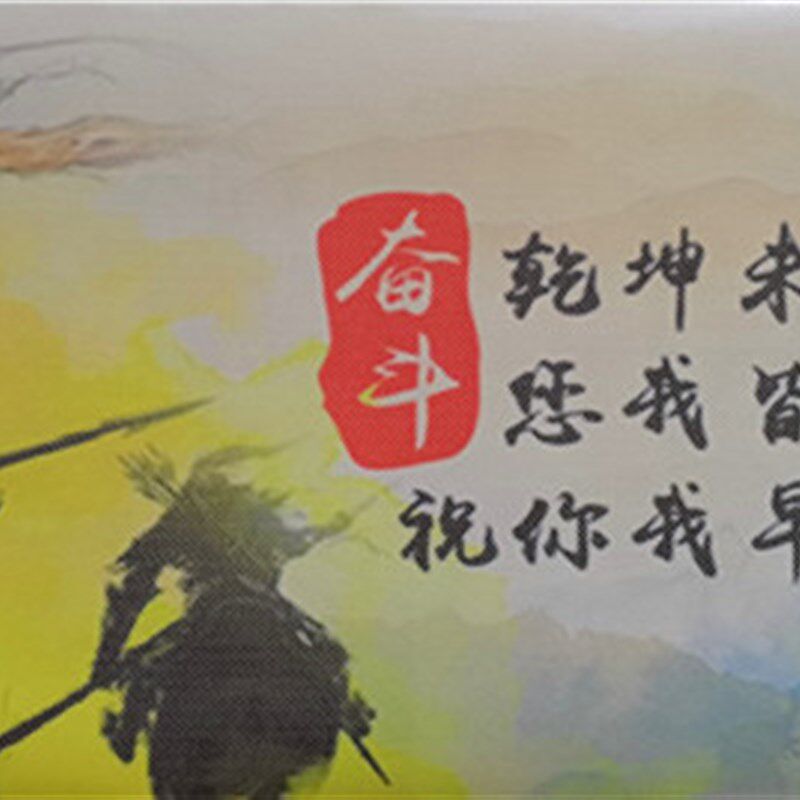 奋斗
乾坤未
您我皆
祝你我早